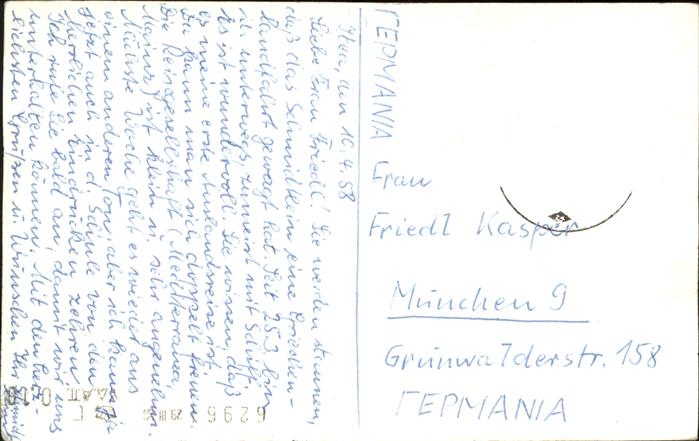 Athen, den 10.4.58
Liebe Frau Friedl! Sie werden staunen,
daß das Schmidtlein eine Griechen-
landfahrt gewagt hat. Seit 25.3. bin
ich unterwegs, zumeist mit Schiff.
Es ist wundervoll. Sie wissen, daß
es meine erste Auslandsreise ist.
Da kann man sich doppelt freuen.
Die Reisegesellschaft (Mediterranea
Mainz) ist klein u. sehr angenehm.
Nächste Woche geht es wieder aus
einem anderen Ton, aber ich kann ja
jetzt auch in d. Schule von den
herrlichen Eindrücken zehren.
Ich rufe Sie bald an, damit wir uns
unterhalten können. Mit den herz-
lichsten Grüßen u. Wünschen Ihr
ΓΕΡΜΑΝΙΑ
Frau
Friedl Kasper
München 9
Grünwalderstr. 158
ΓΕΡΜΑΝΙΑ
6296
29 III